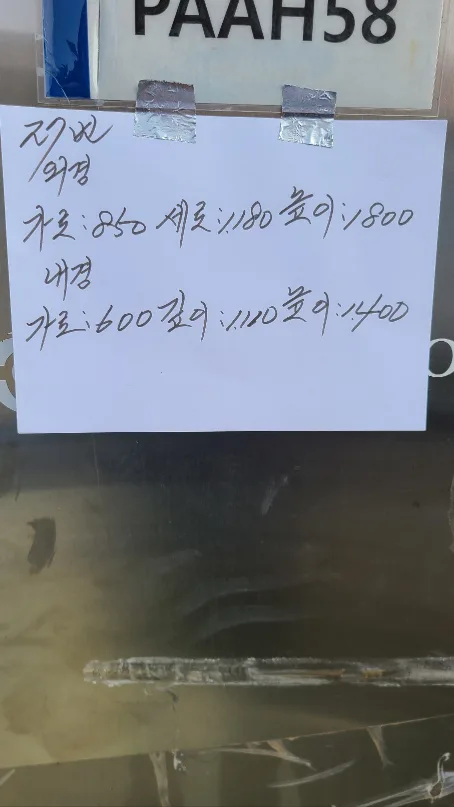 PAAH58
저번
외경
가로:850 세로:1,180 높이:1,800
내경
가로:600 깊이:1,110 높이:1,400